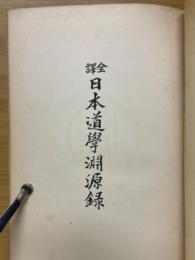 全譯
日本道學淵源錄